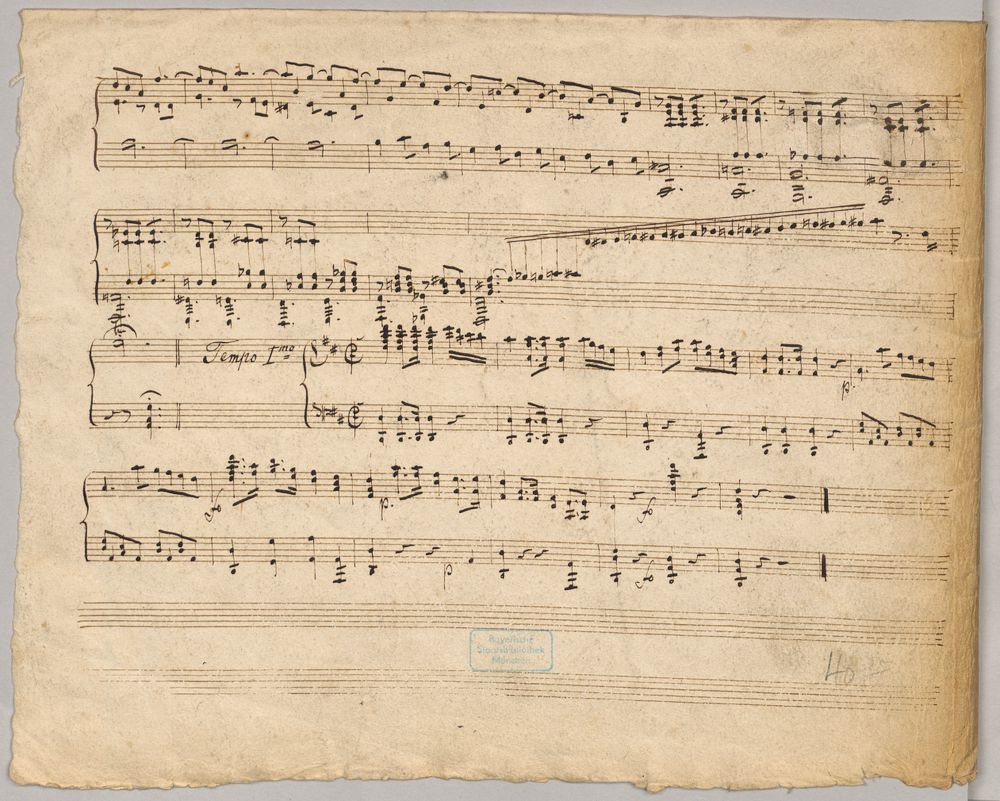 Tempo I mo
p.
fo
p.
fo
p
fo
Bayerische
Staatsbibliothek
München